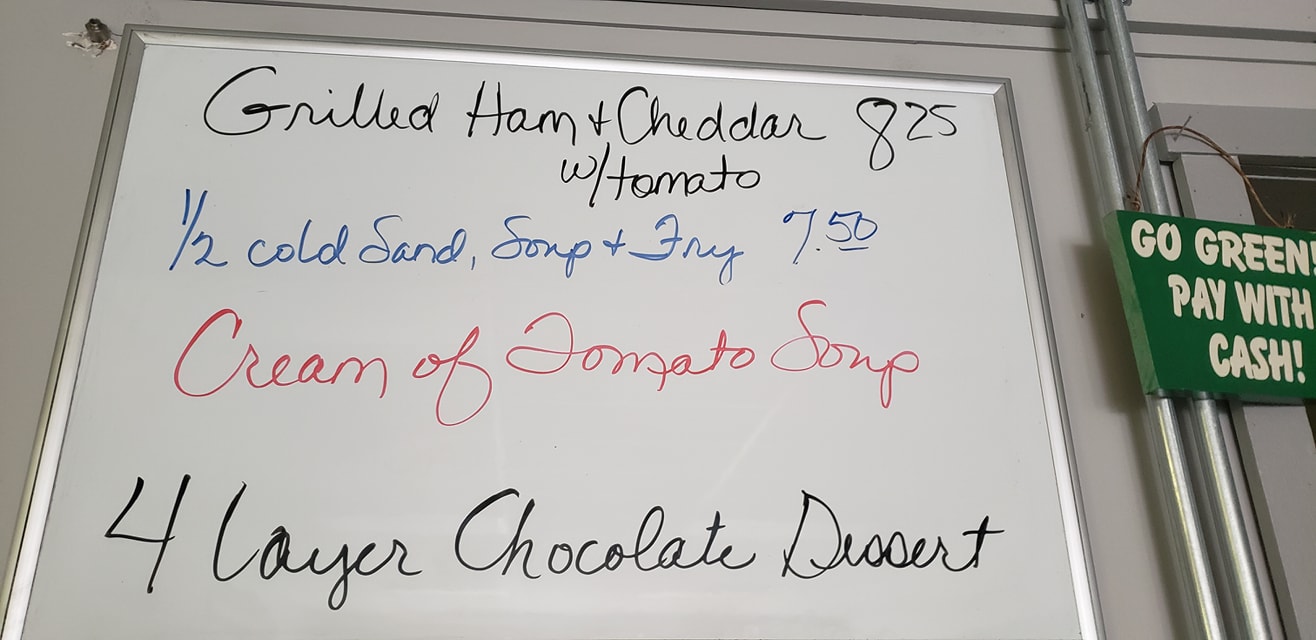 Grilled Ham + Cheddar 825
w/tomato
1/2 cold Sand, Soup + Fry 7.50
Cream of Tomato Soup
4 Layer Chocolate Dessert
GO GREEN!
PAY WITH
CASH!